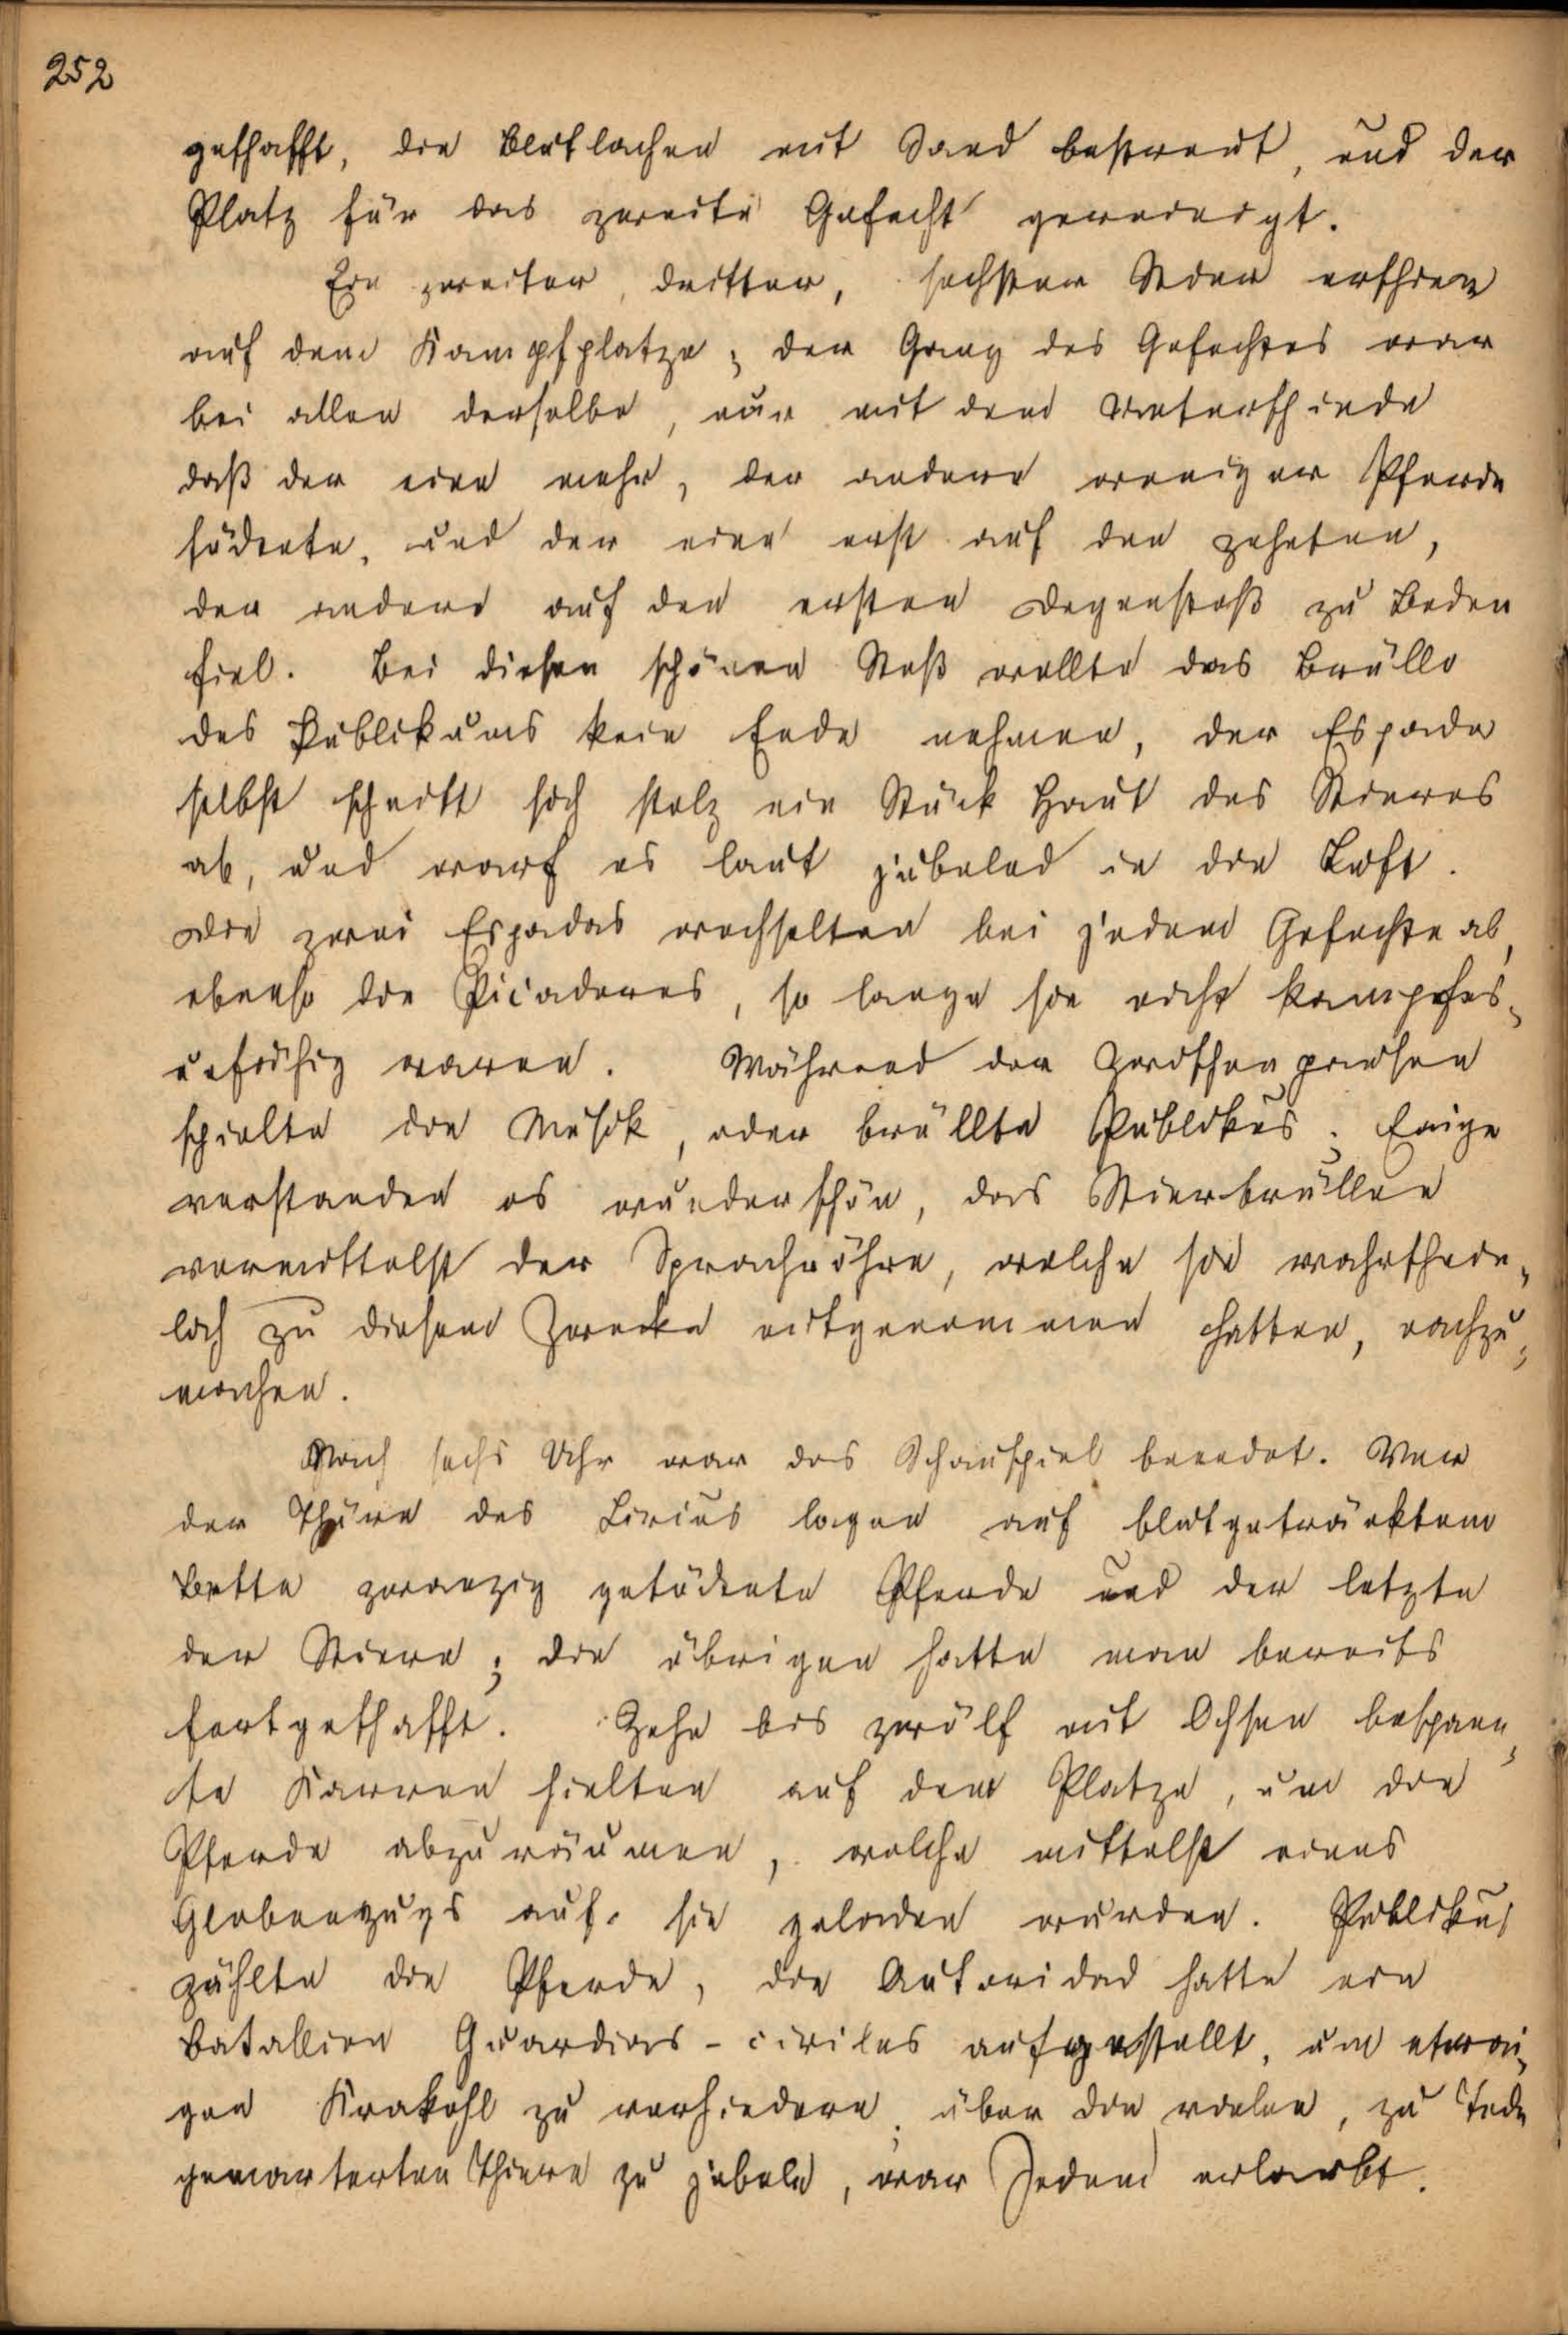 252
geschafft, die Blutlachen mit Sand bestreut, und der
Platz für das zweite Gefecht gereinigt.
Ein zweiter, dritter, sechster Stier erschien
auf dem Kampfplatze; der Gang des Gefechtes war
bei allen derselbe, nur mit dem Unterschiede
daß der eine mehr, der andere weniger Pferde
tödtete, und der eine erst auf den zehnten,
der andere auf den ersten Degenstoß zu Boden
fiel. Bei diesen schönen Stoß wollte das Brülle
des Publikums kein Ende nehmen, der Espada
selbst schnitt sich stolz ein Stück Haut des Stieres
ab, und warf es laut jubelnd in die Luft.
Die zwei Espadas wechselten bei jedem Gefechte ab,
ebenso die Picadores, so lange sie nicht kampfes-
unfähig waren. Während der Zwischenpausen
spielte die Musik, oder brüllte Publikus. Einige
verstanden es wunderschön, das Stierbrüllen
vermittelst der Sprachröhre, welche sie wahrschein-
lich zu diesem Zwecke mitgenommen hatten, nachzu-
machen.
Nach sechs Uhr war das Schauspiel beendet. Vor
der Thüre des Circus lagen auf blutgetränktem
Bette zwanzig getödtete Pferde und der letzte
der Stiere; die übrigen hatte man bereits
fortgeschafft. Zehn bis zwölf mit Ochsen bespann-
te Karren hielten auf dem Platze, um die
Pferde abzuräumen, welche mittelst eines
Globenzugs auf sie geladen wurden. Publikus
zählte die Pferde, die Autoridad hatte ein
Batallion Guardias-civiles aufgestellt, um etwai-
gen Krakehl zu verhindern, über die vielen, zu Tode
gemarterten Thiere zu jubeln, war Jedem erlaubt.